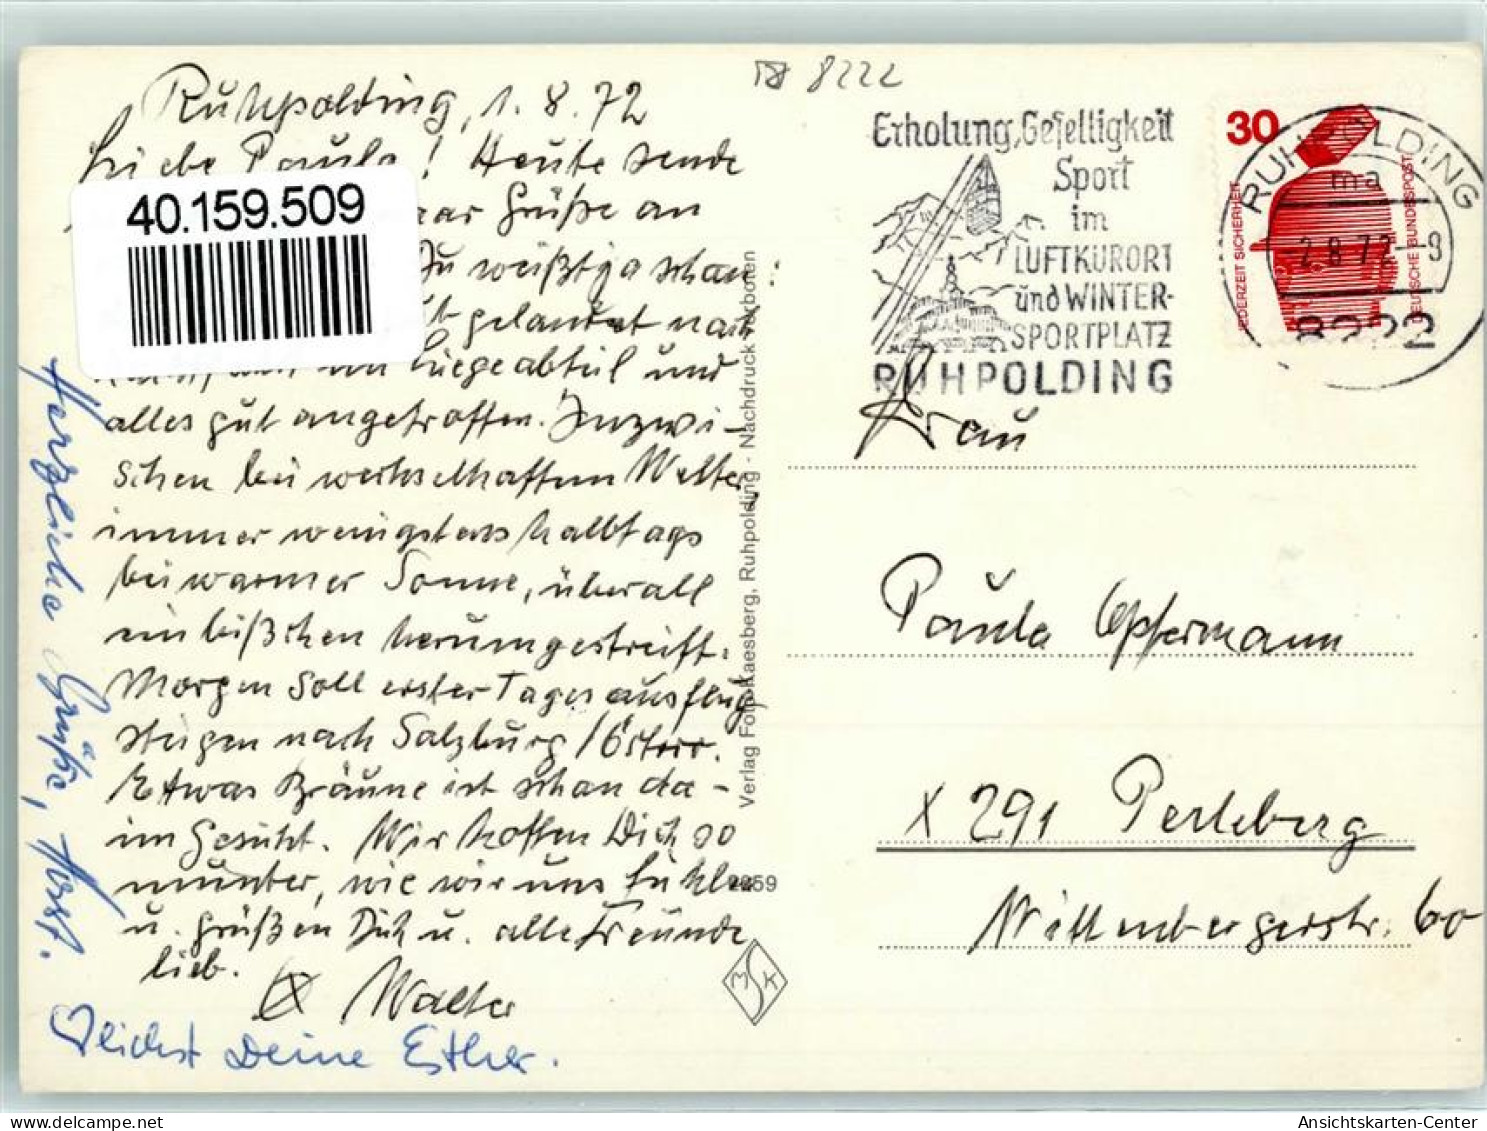 Ruhpolding, 1.8.72
Liebe Paula! Heute sende
Grüße an
Du weißt ja schon:
gelandet nach
Liegeabteil und
alles gut angetroffen. Inzwi-
schen bei wechselhaftem Wetter,
immer wenigstens halbtags
bei warmer Sonne, überall
ein bißchen herumgestreift.
Morgen soll erster Tagesausflug
steigen nach Salzburg / Österr.
Etwas Bräune ist schon da -
im Gesicht. Wir hoffen Dich so
munter, wie wir uns fühlen
u. grüßen Dich u. alle Freunde
lieb.
Walter
♡lichst Deine Esther.
Herzliche Grüße, Horst.
40.159.509
Verlag Foto Kaesberg, Ruhpolding - Nachdruck verboten
8222
Erholung, Geselligkeit
Sport
im
LUFTKURORT
und WINTER-
SPORTPLATZ
RUHPOLDING
30
JEDERZEIT SICHERHEIT
DEUTSCHE BUNDESPOST
RUHPOLDING
ma
-2.8.72-9
8222
Frau
Paula Opfermann
X 291 Perleberg
Wittenbergerstr. 60
M S K
oldthing.net
Ansichtskarten-Center